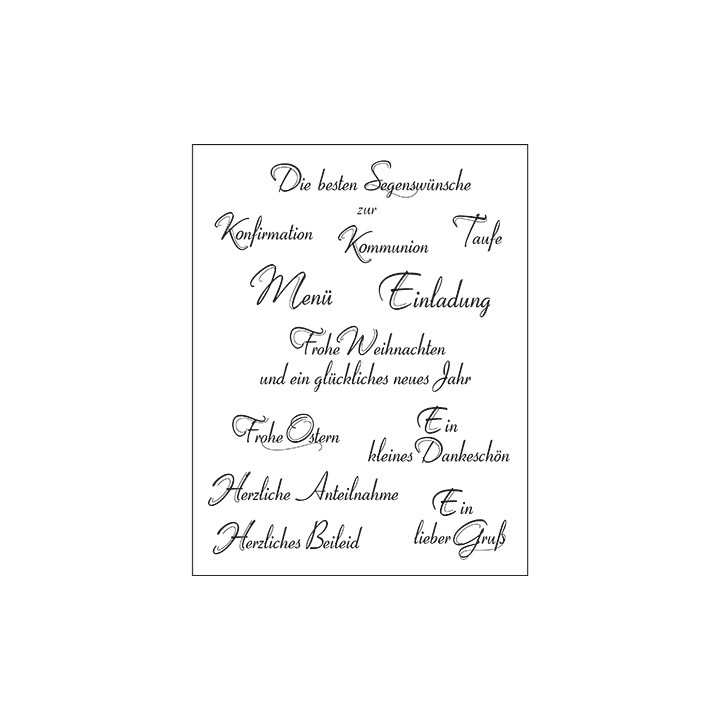 Die besten Segenswünsche
zur
Konfirmation Kommunion Taufe
Menü Einladung
Frohe Weihnachten
und ein glückliches neues Jahr
Frohe Ostern
Ein
kleines Dankeschön
Herzliche Anteilnahme
Herzliches Beileid
Ein
lieber Gruß